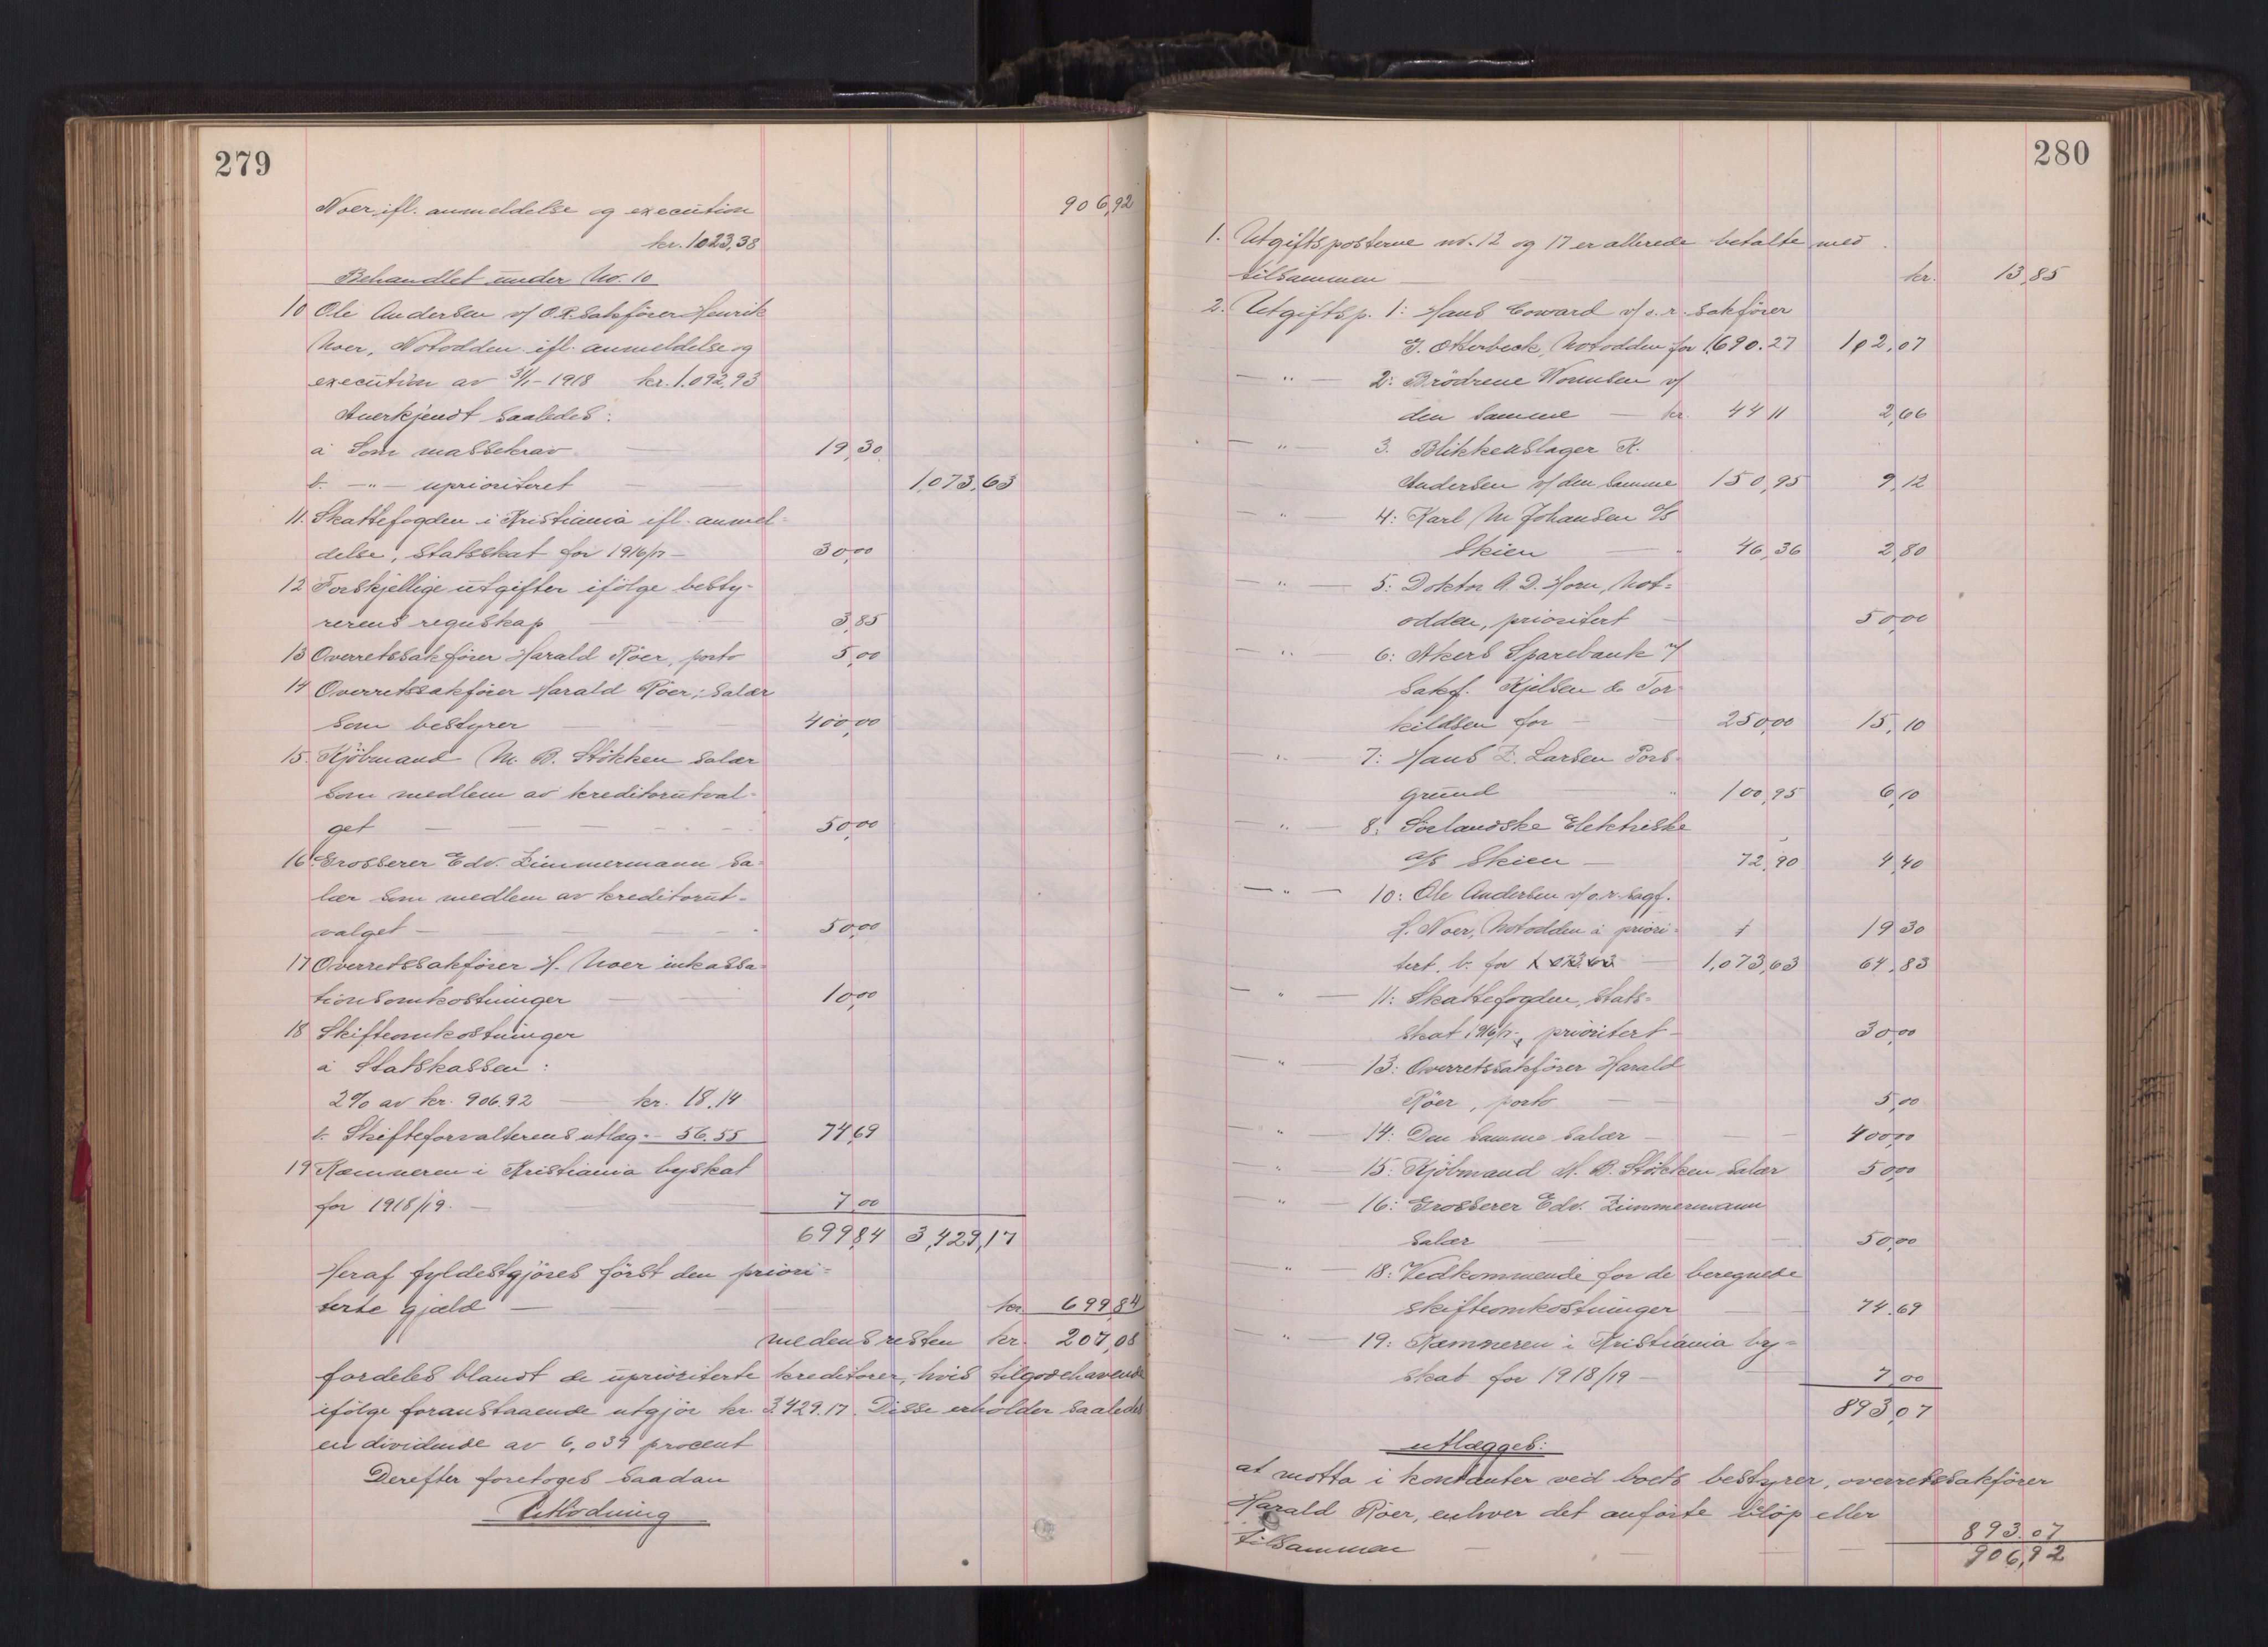 279
Noer, ifl. anmeldelse og execution 906,92
kr. 1023,38
Behandlet under No. 10
10 Ole Andersen v/ O.R.sakfører Henrik
Noer, Notodden ifl. anmeldelse og
execution av 31/1-1918 kr. 1.092,93
Anerkjendt saaledes:
a Som massekrav — 19,30
b. —"— uprioriteret — 1,073,63
11. Skattefogden i Kristiania ifl. anmel=
delse, statsskat for 1916/17 — 30,00
12 Forskjellige utgifter ifølge besty-
rerens regnskap — 3,85
13 Overretssakfører Harald Röer, porto 5,00
14 Overretssakfører Harald Röer; salær
som bestyrer — 400,00
15. Kjöbmand M. B. Stökken salær
som medlem av kreditorutval-
get — 50,00
16. Grosserer Edv. Zimmermann sa=
lær som medlem av kreditorut-
valget — 50,00
17 Overretssakfører H. Noer inkassa=
tionsomkostninger — 10,00
18 Skifteomkostninger
a Statskassen:
2% av kr. 906.92 — kr. 18.14
b. Skifteforvalterens utlæg - 56.55 74,69
19 Kæmneren i Kristiania byskat
for 1918/19. — 7,00
699,84 3,429,17
Heraf fyldestgjøres först den priori=
terte gjæld — kr. 699,84
medens resten kr. 207,08
fordeles blandt de uprioriterte kreditorer, hvis tilgodehavende
ifølge foranstaaende utgjör kr. 3.429.17. Disse erholder saaledes
en dividende av 6,039 procent
Derefter foretoges saadan
Utlodning
280
1. Utgiftsposterne nr. 12 og 17 er allerede betalte med
tilsammen — kr. 13,85
2. Utgiftsp. 1: Hans Coward v/ o.r. sakfører
G. Otterbeck, Notodden for 1,690.27 102,07
— " — 2: Brödrene Wonnsen v/
den samme — kr. 44 11 2,66
— " — 3. Blikkenslager K.
Andersen v/ den samme 150,95 9,12
— " — 4: Karl M. Johansen A/S
Skien — 46,36 2,80
— " — 5: Doktor A. D. Horn, Not=
odden, prioritert — 50,00
— " — 6: Akers Sparebank v/
sakf. Kjelsen & Tor-
kildsen for — 250,00 15,10
" — 7: Hans Z. Larsen Pors-
grund — " 100,95 6,10
" — 8: Sørlandske Elektriske
A/S Skien — 72,90 4,40
— " — 10: Ole Andersen v/ o.r. sagf.
H. Noer, Notodden a priori= 19 30
tert, b. for 1.073.63 — 1,073,63 64,83
— " — 11: Skattefogden, stats=
skat 1916/17, prioritert — 30,00
— " — 13: Overretssakfører Harald
Röer, porto — 5,00
— " — 14: Den samme salær — 400,00
— " — 15: Kjöbmand M. B. Stökken salær 50,00
— " — 16: Grosserer Edv. Zimmermann
salær — 50,00
— " — 18: Vedkommende for de beregnede
skifteomkostninger — 74.69
— " — 19: Kæmneren i Kristiania by=
skat for 1918/19 — 7,00
893,07
utlægges:
at motta i kontanter ved boets bestyrer, overretssakfører
Harald Röer, enhver det anførte beløp eller
tilsammen — 893.07
906,92